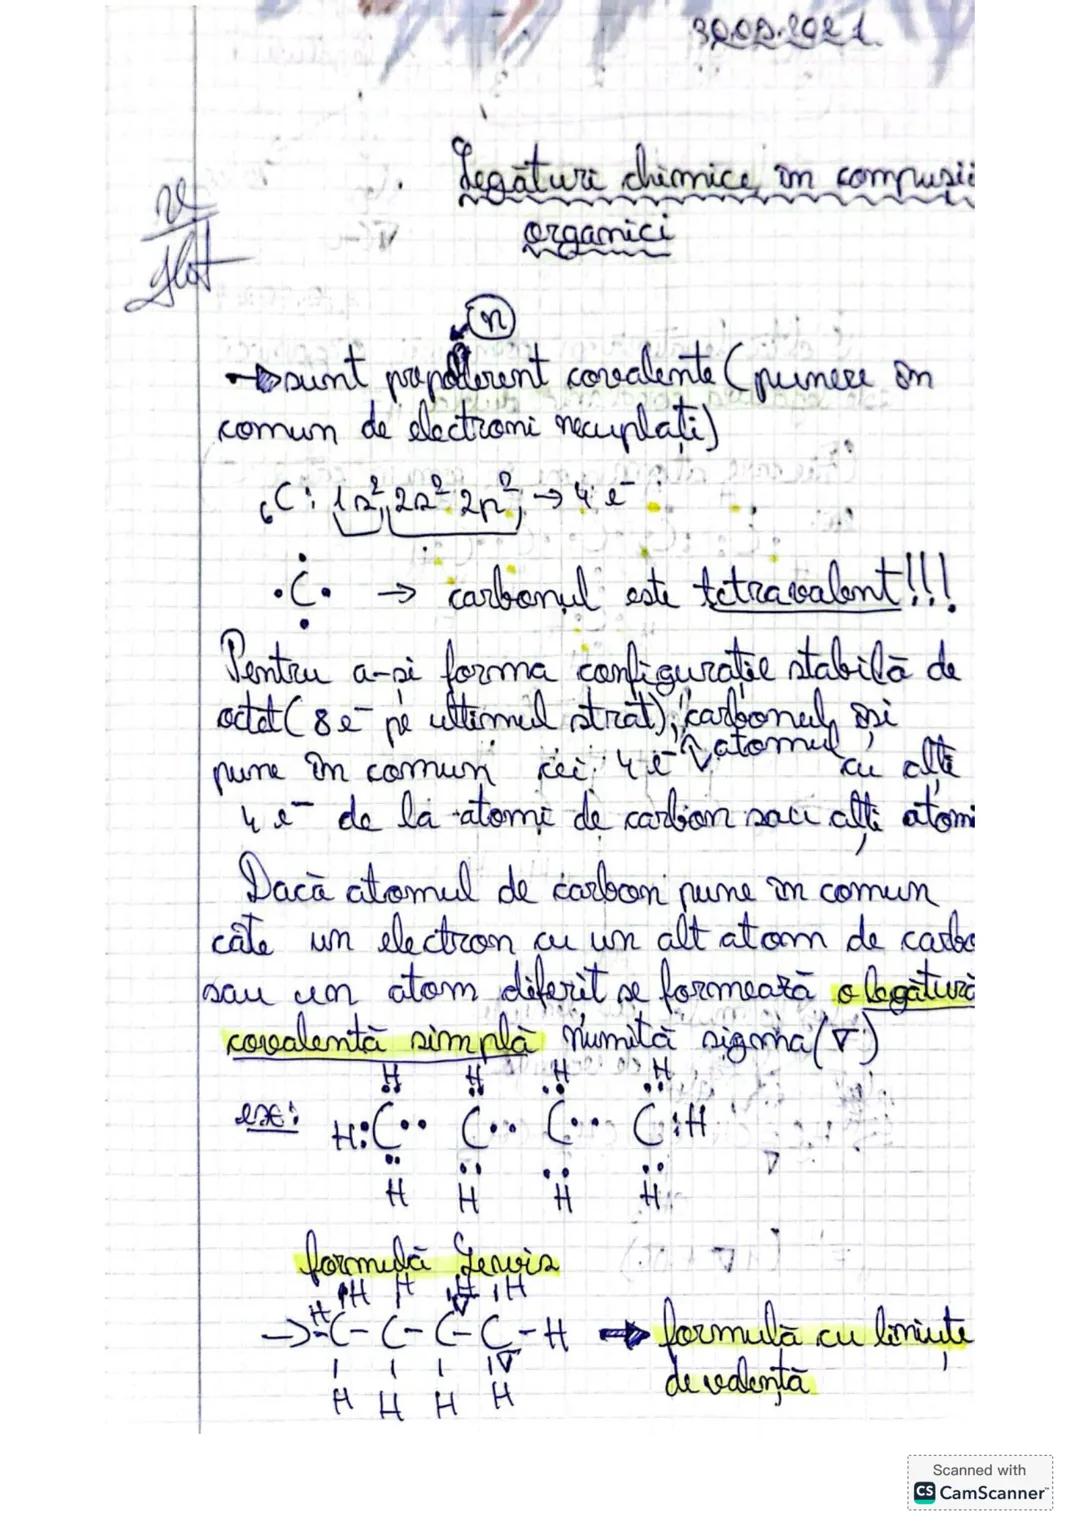 Legături chimice în compuși
organici
n
→ sunt preponderent covalente (punere în
comun de electroni necuplați)
₆C: 1s² 2s² 2p² → 4 e⁻
·C· → carbonul este tetravalent!!!
Pentru a-și forma configurație stabilă de
octet (8e⁻ pe ultimul strat), carbonul își
atomul
pune în comun cei 4 e⁻ cu alți
4 e⁻ de la atomi de carbon sau alți atomi
Dacă atomul de carbon pune în comun
câte un electron cu un alt atom de carbo
sau un atom diferit se formează o legătură
covalentă simplă numită sigma (∇)
H H H H
ex: H:C·· C·· C·· C:H
H H H H
formulă Lewis
H H H H
→ H-C-C-C-C-H → formulă cu liniuțe
H H H H de valență
Scanned with
CS CamScanner